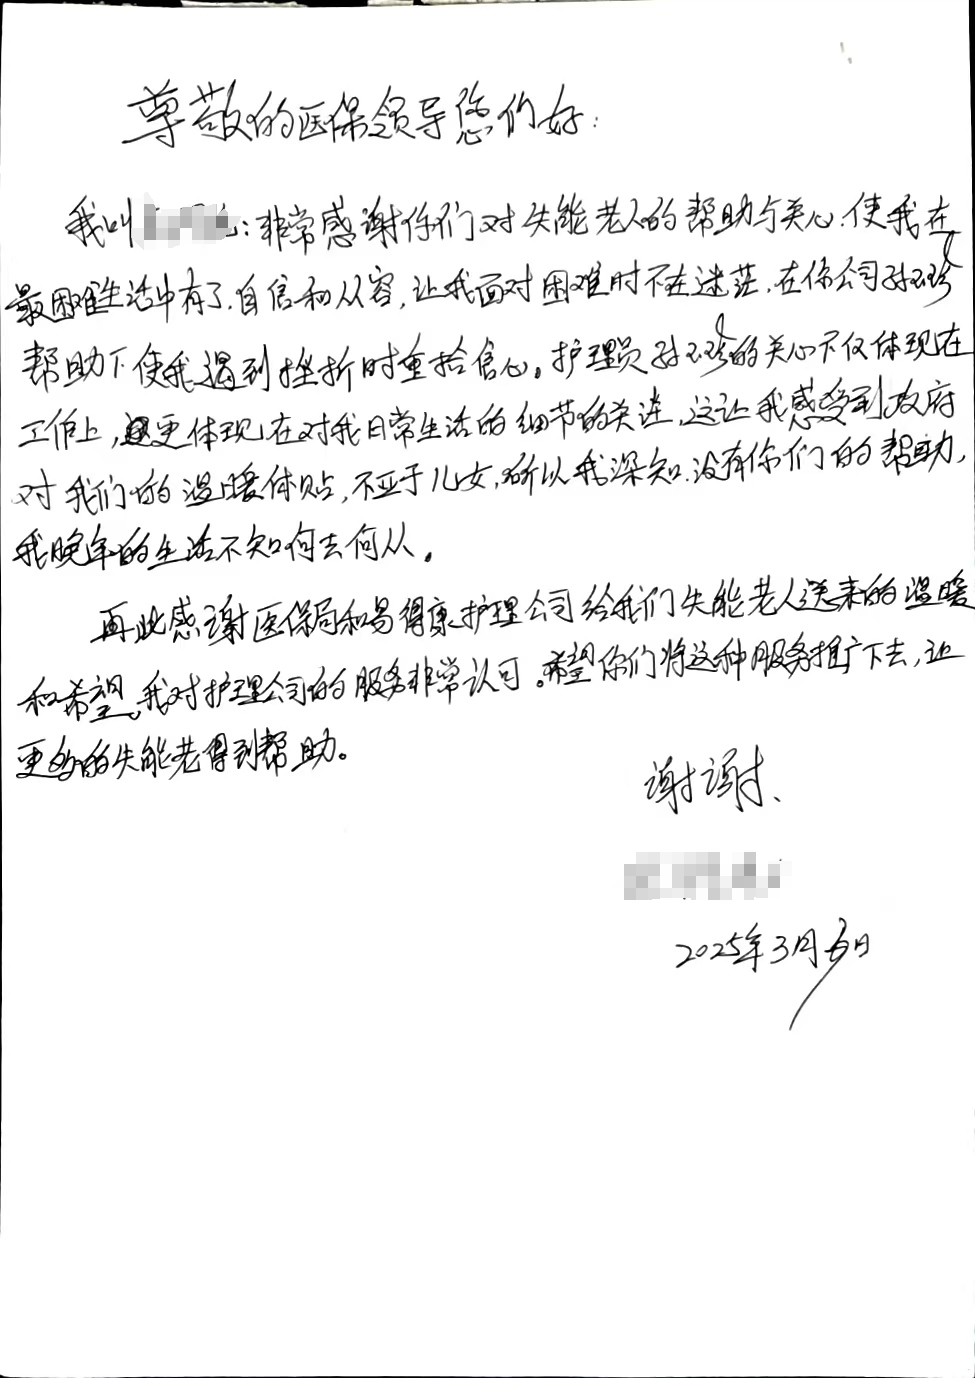 尊敬的医保领导您们好：
我叫：非常感谢你们对失能老人的帮助与关心.使我在
最困难生活中有了.自信和从容,让我面对困难时不在迷茫.在你公司孙玉珍
帮助下使我遇到挫折时重拾信心。护理员孙玉珍的关心不仅体现在
工作上,更体现在对我日常生活的细节的关连.这让我感受到政府
对我们的温暖体贴,不亚于儿女,所以我深知.没有你们的帮助,
我晚年的生活不知何去何从。
再此感谢医保局和易得康护理公司给我们失能老人送来的温暖
和希望。我对护理公司的服务非常认可。希望你们将这种服务推广下去,让
更多的失能老得到帮助。
谢谢、
2025年3月日